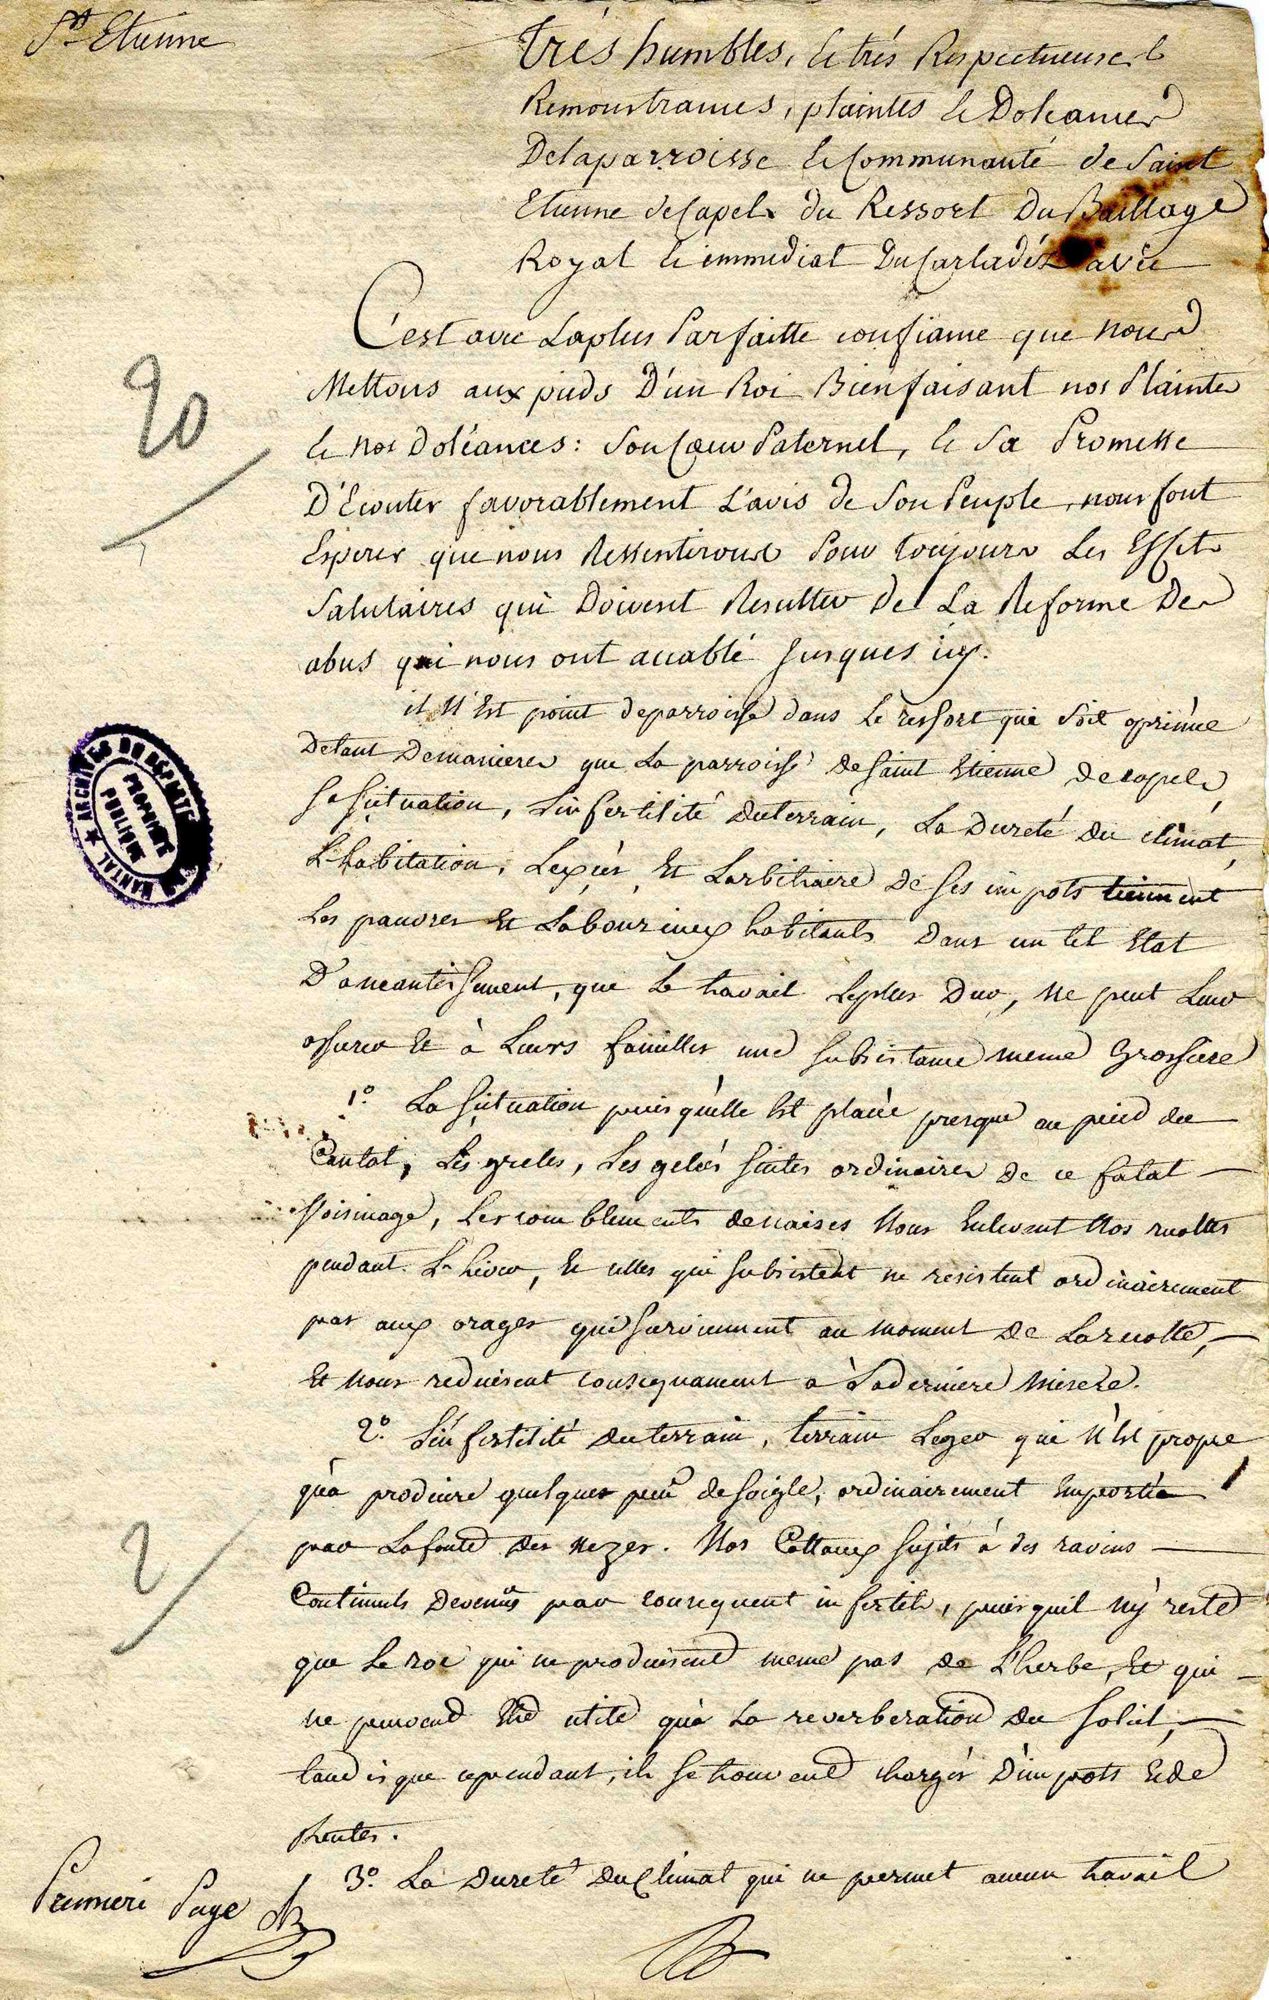 St Etienne
Trés humbles, & trés Respectueuses
Remonstrances, plaintes & Doleances
Delaparroisse & Communauté de Saint
Etienne de Capels du Ressort Du Baillage
Royal & immediat Du Carladéz a vic
C'est avec Laplus Parfaitte confiance que nous
Mettons aux pieds D'un Roi Bienfaisant nos Plaintes
& nos doléances: Son Cœur Paternel, & Sa Promesse
D'Ecouter favorablement L'avis de Son Peuple, nous font
Esperer que nous Ressentirons Pour toujours Les Effets
Salutaires qui Doivent Resulter de La Reforme Des
abus qui nous ont accablé jusques icy.
il N'Est point deparroisse dans Le ressort qui Soit oprimée
Detant Demanieres que La parroisse de Saint Etienne de capels,
Sa situation, L'infertilité duterrain, La Dureté du climat,
L'habitation, L'excès, Et L'arbitraire de ses impots tiennent
Les pauvres Et Labourieux habitants Dans un tel Etat
D'aneantissement, que Le travail Leplus Dur, Ne peut Leur
assurer Et à Leurs familles une subsistance meme Grossiere
1.° La situation puisqu'elle Est placée presque au pied du
Cantal, Les greles, Les gelées suites ordinaires de ce fatal
Voisinage, Lescomblements de naiges Nous Enlevent Nos recoltes
pendant L'hiver, Et celles qui subsistent ne resistent ordinairement
pas aux orages qui surviennent au moment de Larecolte,
Et Nous reduisent consequament a Laderniere Misere.
2.° L'infertilité duterrain, terrain Leger qui N'Est propre
qu'a produire quelques peu de soigle, ordinairement Emportée
par Lafonte des Neges. Nos Cottaux sujets à des ravins
Continuels Devenus par consequent infertils, puisquil N'y reste
que Le roc qui ne produisent meme pas de L'herbe, Et qui
ne peuvent Etre utile qu'a La reverberation du Soleil,
tandisque cependant, ils se trouvent chargés D'impots Et de
Rentes.
3.° La Dureté Du Climat qui ne permet aucun travail
Premiere Page
20
2
ARCHIVES DU DÉPARTt DU CANTAL
PROPRIÉTÉ PUBLIQUE